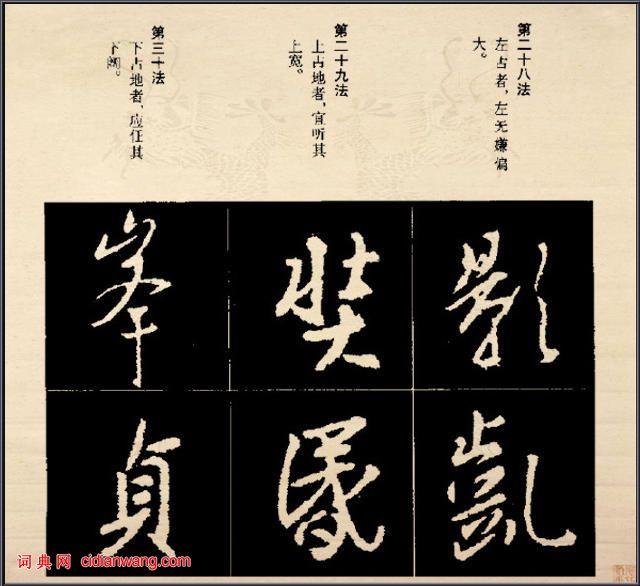 第二十八法
左占者，左无嫌偏
大。
第二十九法
上占地者，宜听其
上宽。
第三十法
下占地者，应任其
下阔。
影
凱
奘
峯
貞
词典网 cidianwang.com